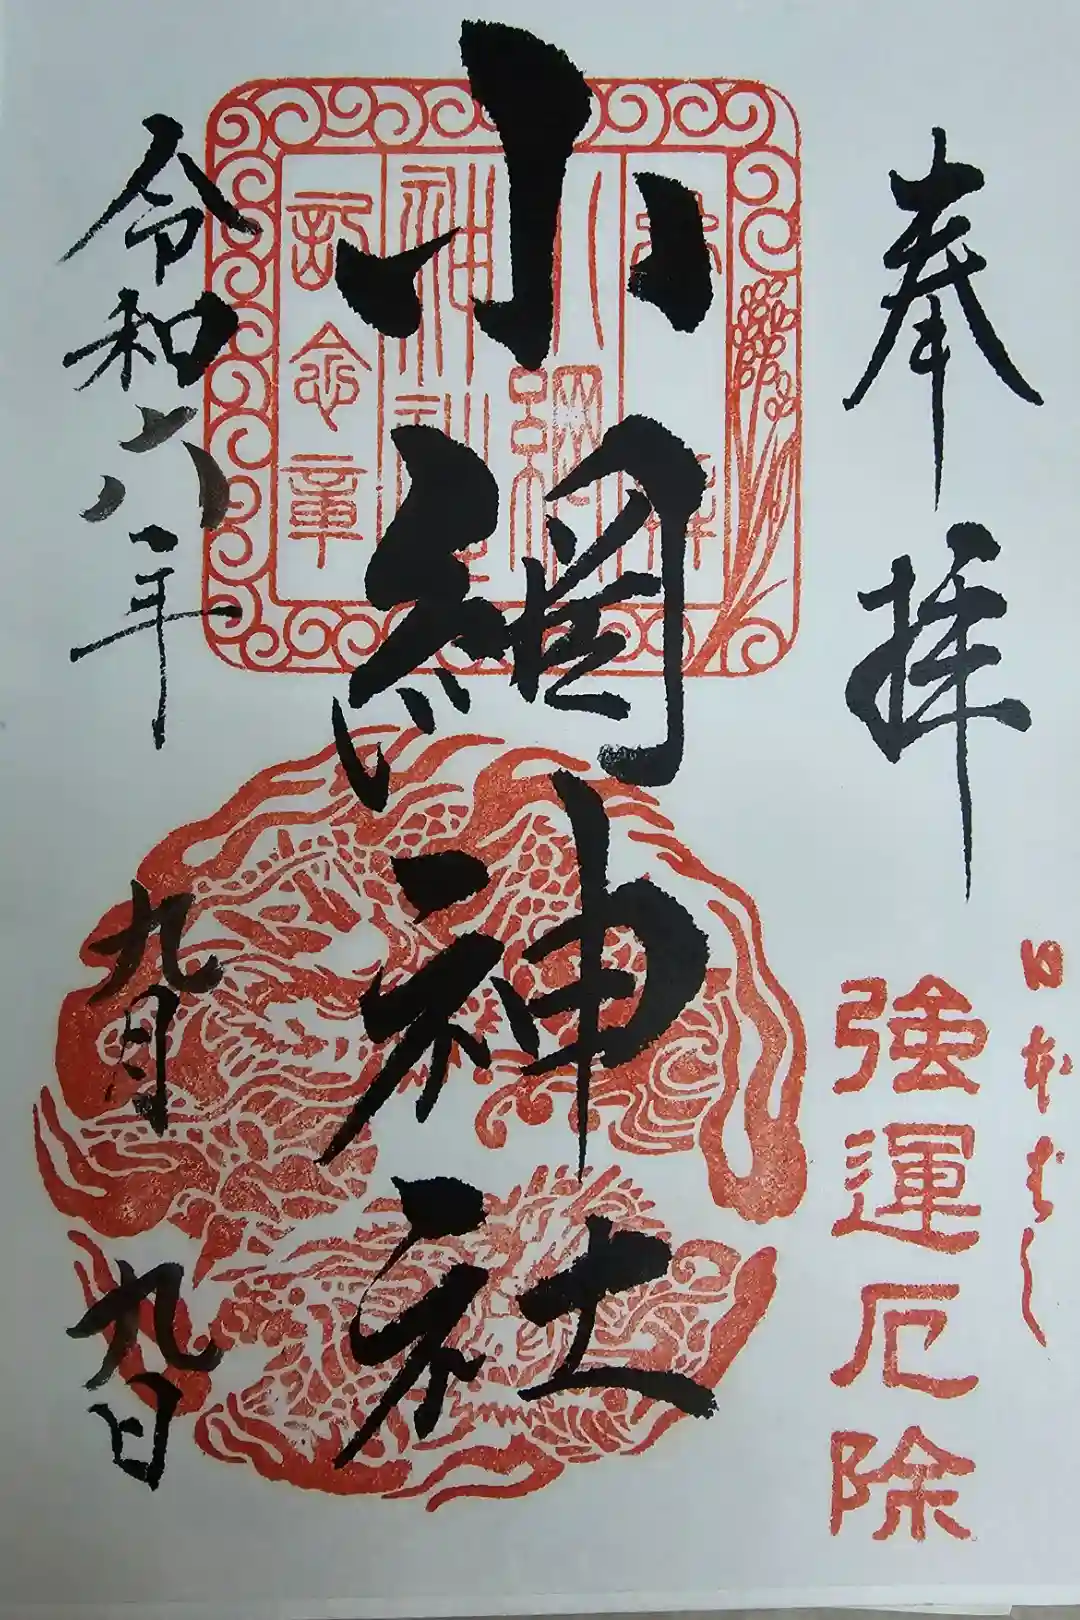 奉拝
日本ばし
強運厄除
小網神社
小網
神社
記念章
令和六年
九月
九日